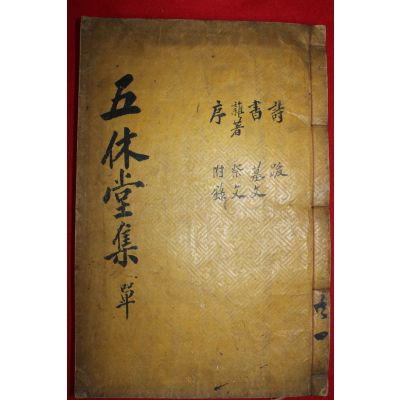 五休堂集 單
詩
書
雜著
序
跋
墓文
祭文
附錄
共一